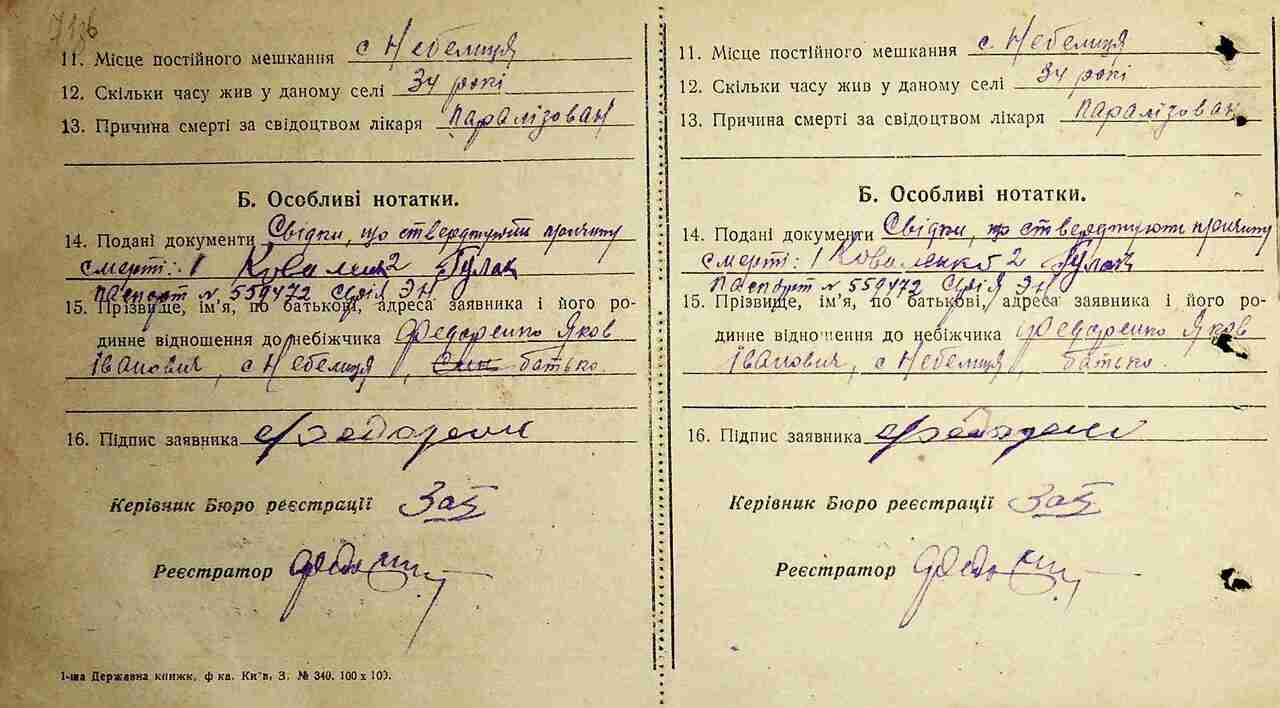 11. Місце постійного мешкання с Небелиця
12. Скільки часу жив у даному селі 34 рокі
13. Причина смерті за свідоцтвом лікаря паралізован
Б. Особливі нотатки.
14. Подані документи Свідки, що стверджують причину
смерті: 1 Коваленко 2 Гулак
паспорт № 559472 Серія ЭН
15. Прізвище, ім'я, по батькові, адреса заявника і його ро-
динне відношення до небіжчика Федоренко Яков
Іванович, с Небелиця, батько.
16. Підпис заявника
Керівник Бюро реєстрації
Реєстратор
1-ша Державна книжк. ф-ка. Київ, З. № 340. 100 х 100.
11. Місце постійного мешкання с. Небелиця
12. Скільки часу жив у даному селі 34 рокі
13. Причина смерті за свідоцтвом лікаря паралізован
Б. Особливі нотатки.
14. Подані документи Свідки, що стверджують причину
смерті: 1 Коваленко 2 Гулак
паспорт № 559472 Серія ЭН
15. Прізвище, ім'я, по батькові, адреса заявника і його ро-
динне відношення до небіжчика Федоренко Яков
Іванович, с Небелиця, батько.
16. Підпис заявника
Керівник Бюро реєстрації
Реєстратор